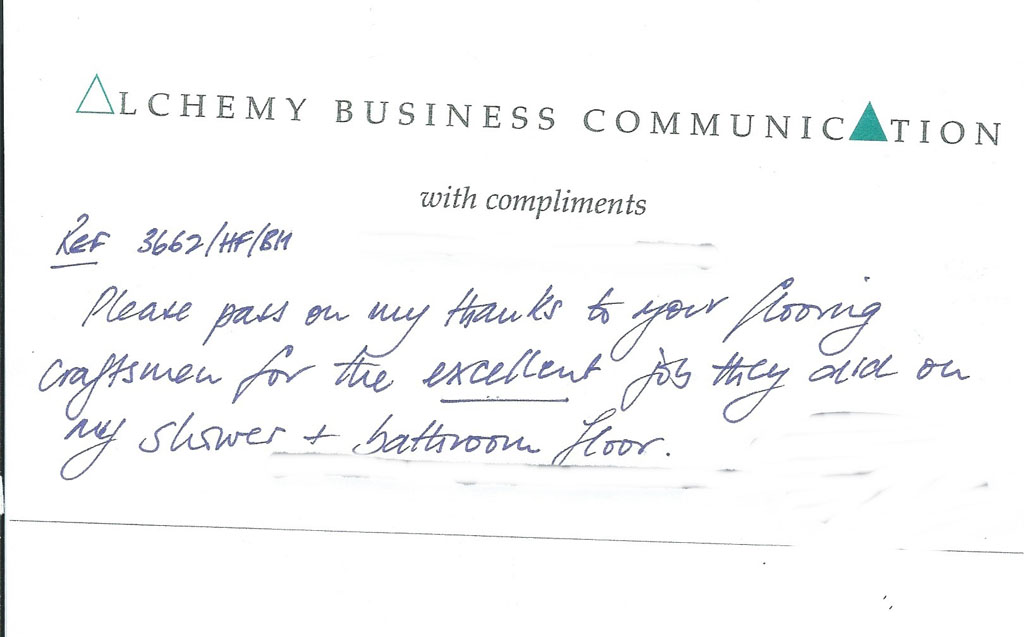 ALCHEMY BUSINESS COMMUNICATION
with compliments
Ref 3662/HF/BH
Please pass on my thanks to your flooring
craftsmen for the excellent job they did on
my shower + bathroom floor.